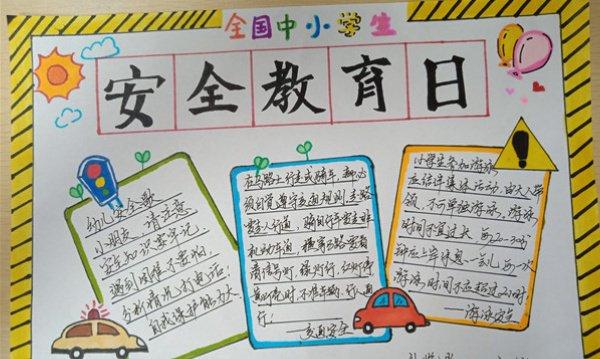 全国中小学生
安全教育日
幼儿安全歌
小朋友，请注意
安全知识要牢记
遇到困难不要怕
分析情况打电话
自我保护能力大
在马路上行走或骑车，都必
须自觉遵守交通规则，走路
要走人行道，骑自行车要走非
机动车道，横穿马路要看
清信号灯，绿灯行，红灯停
黄灯亮时，不准车辆、行人通
行！
——交通安全
小学生参加游泳
应结伴集体活动，由大人带
领，不可单独游泳，游泳
时间不宜过久，每20-30分
钟应上岸休息一会儿，每一次
游泳时间不应超过2小时
——游泳安全